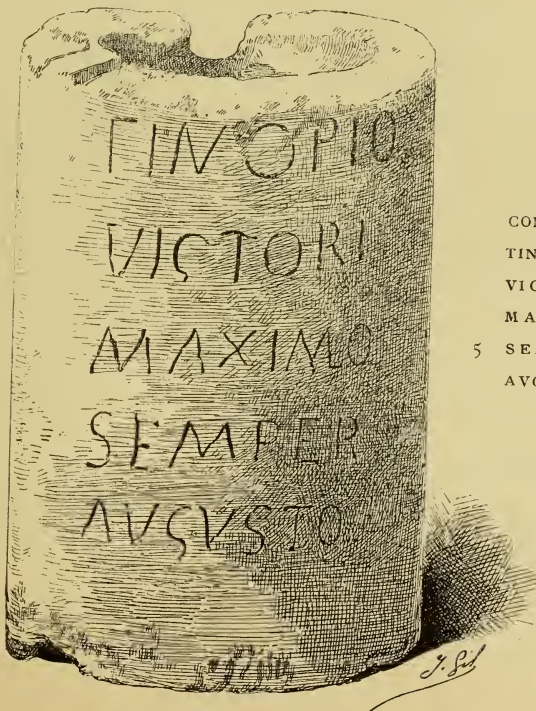 TINO PIO
VICTORI
MAXIMO
SEMPER
AVGVSTO
CON
TIN
VIC
MA
5 SE
AVG
J. Gil